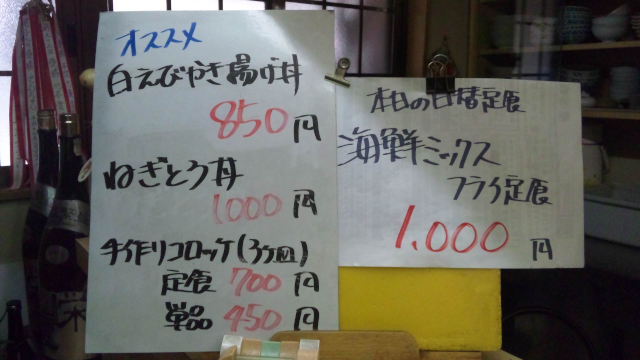 オススメ
白えびかき揚げ丼
850円
ねぎとろ丼
1,000円
手作りコロッケ(3ヶ皿)
定食 700円
単品 450円
本日の日替定食
海鮮ミックス
フライ定食
1,000円